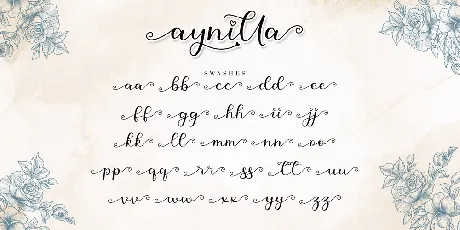 aynilla
SWASHES
aa bb cc dd ee
ff gg hh ii jj
kk ll mm nn oo
pp qq rr ss tt uu
vv ww xx yy zz